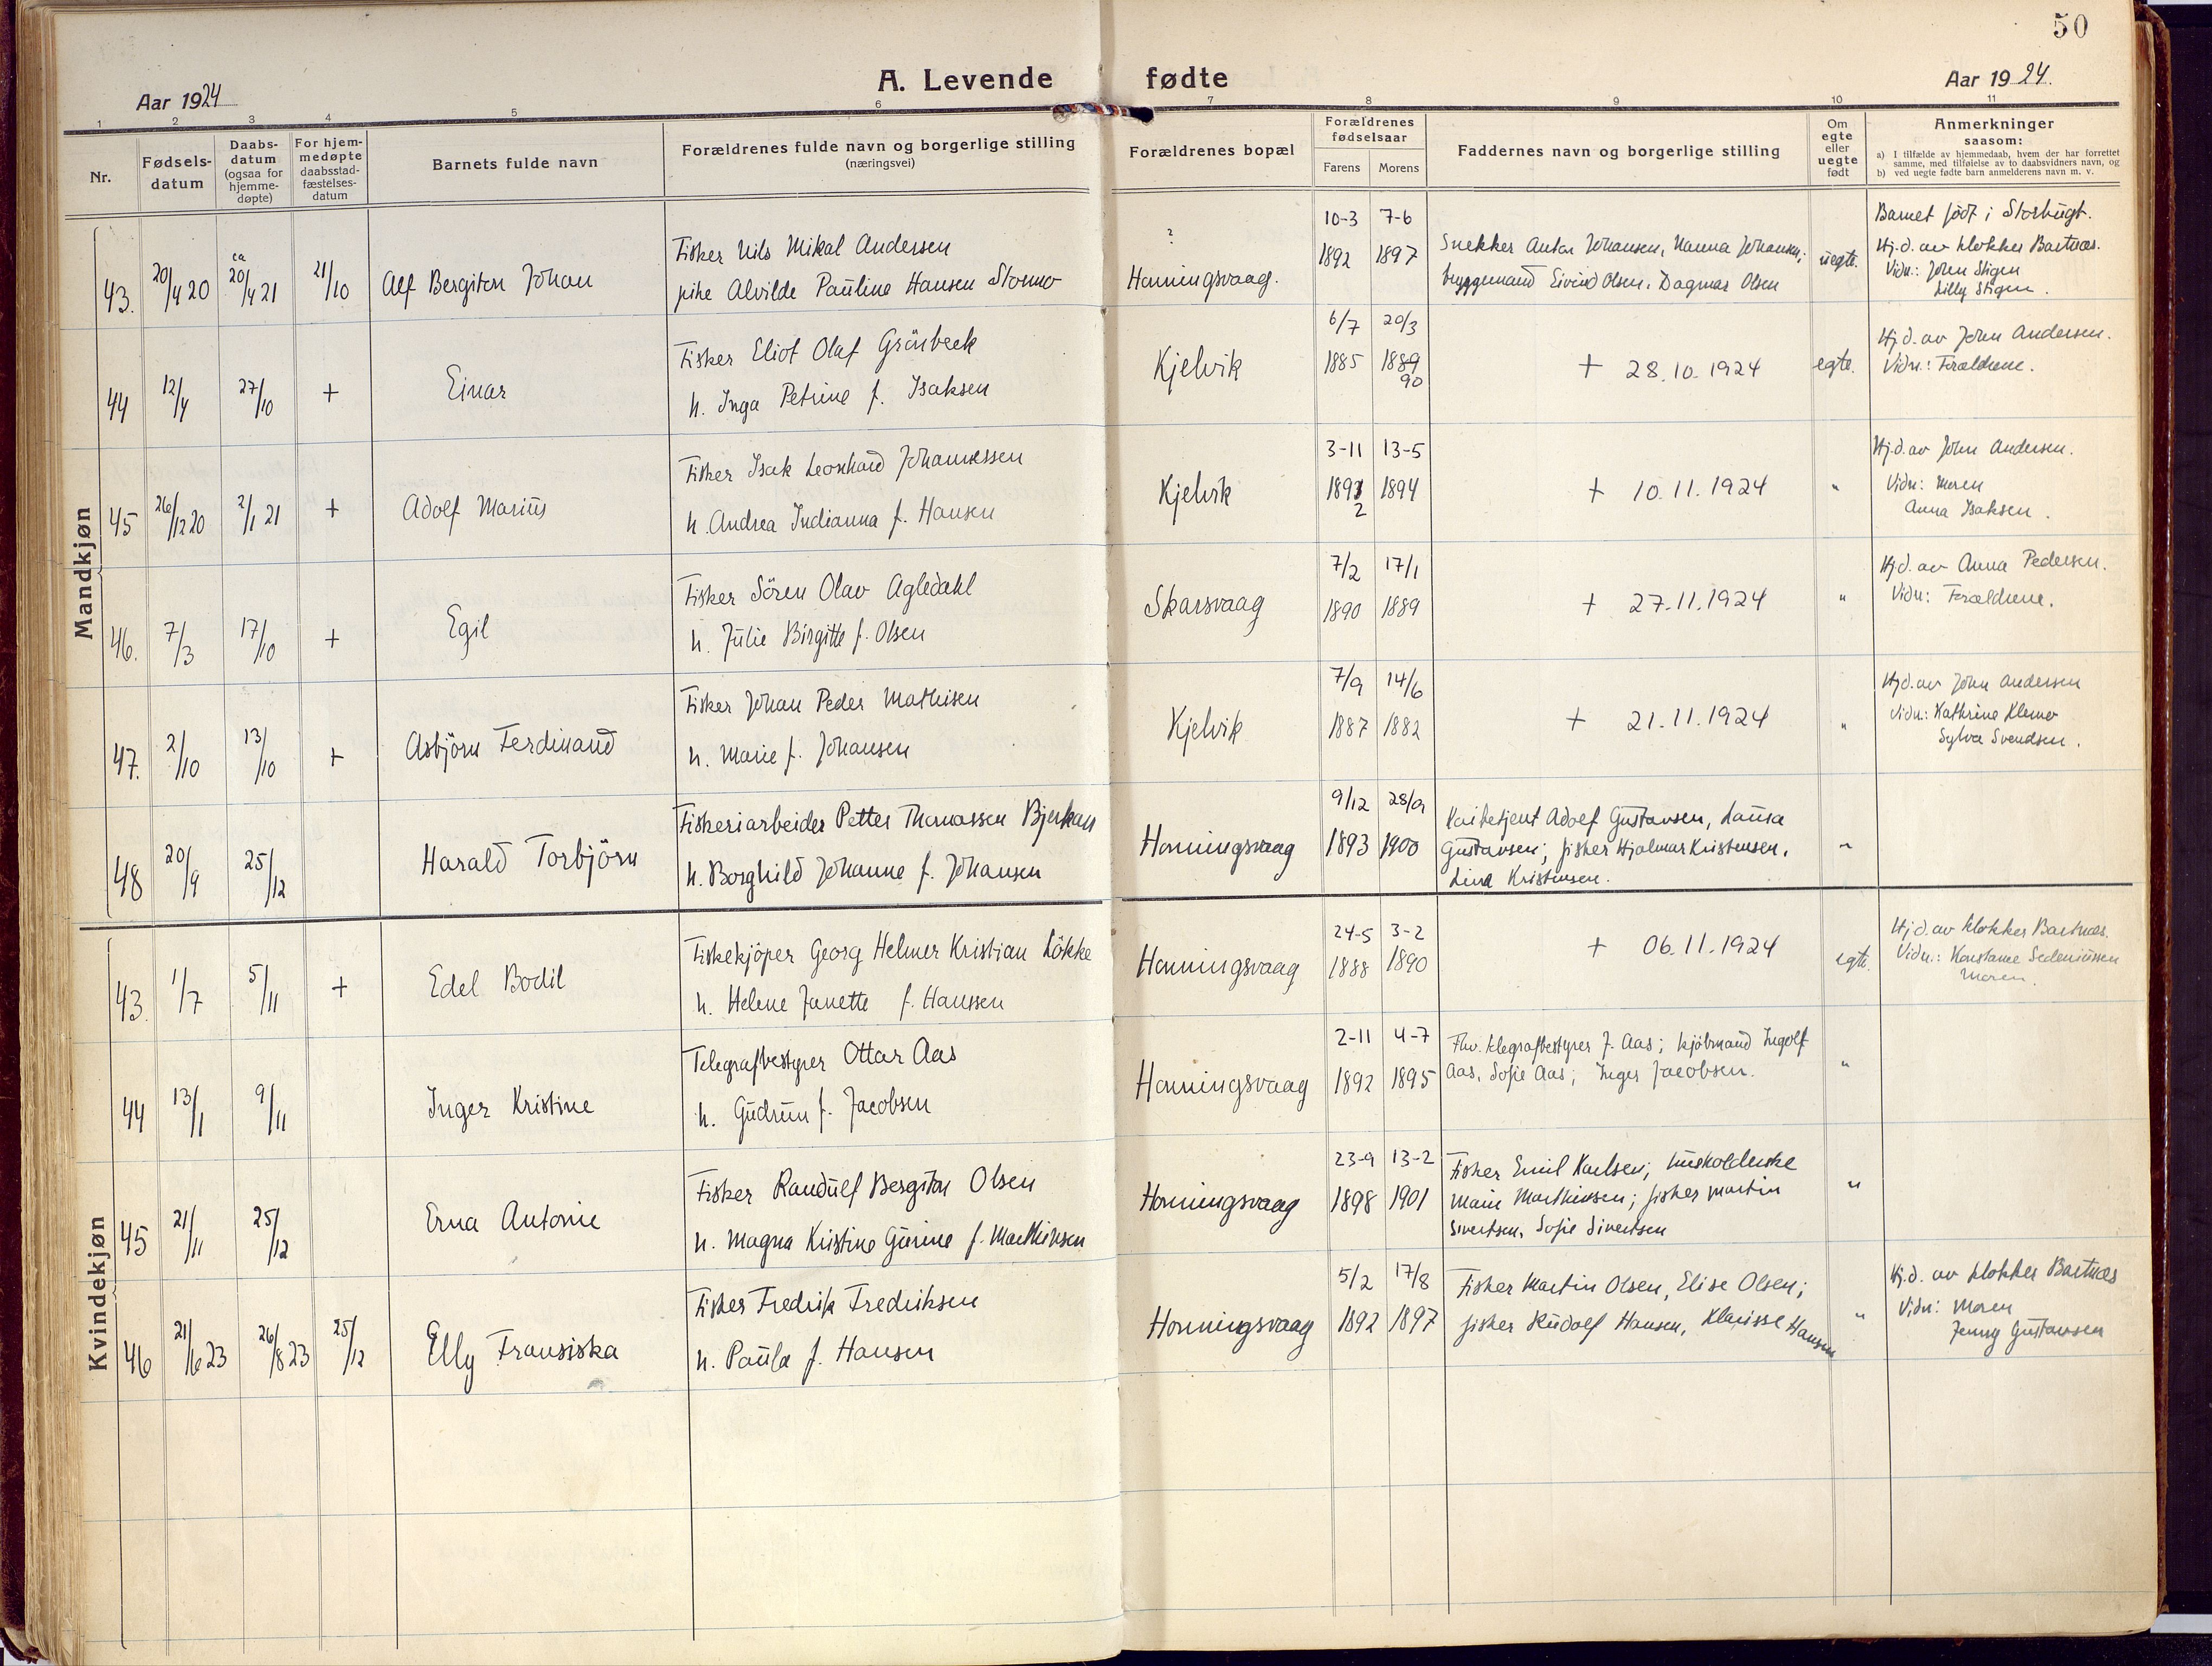 50
A. Levende fødte
Aar 1924
Aar 1924.
1 2 3 4 5 6 7 8 9 10 11
Nr.
Fødsels-
datum
Daabs-
datum
(ogsaa for
hjemme-
døpte)
For hjem-
medøpte
daabsstad-
fæstelses-
datum
Barnets fulde navn
Forældrenes fulde navn og borgerlige stilling
(næringsvei)
Forældrenes bopæl
Forældrenes
fødselsaar
Farens Morens
Faddernes navn og borgerlige stilling
Om
egte
eller
uegte
født
Anmerkninger
saasom:
a) I tilfælde av hjemmedaab, hvem der har forrettet
samme, med tilføielse av to daabsvidners navn, og
b) ved uegte fødte barn anmelderens navn m. v.
Mandkjøn
43. 20/4 20 ca 20/4 21 21/10 Alf Bergiton Johan
Fisker Nils Mikal Andersen
pike Alvilde Pauline Hansen Stormo
?
Honningsvaag.
10-3 7-6
1892 1897
Snekker Anton Johansen, Hanna Johansen;
bryggemand Eivind Olsen, Dagmar Olsen
uegte.
Barnet født i Storbugt.
Hj.d. av klokker Bartnæs.
Vidn.: John Stigen
Lilly Stigen.
44 12/4 27/10 + Einar
Fisker Eliot Olaf Grönbeck
h. Inga Petrine f. Isaksen
Kjelvik
6/7 20/3
1885 1889
90
+ 28.10.1924
egte.
Hj.d. av John Andersen.
Vidn.: Forældrene.
45 26/12 20 2/1 21 + Adolf Marius
Fisker Isak Leonhard Johannessen
h. Andrea Indianna f. Hansen
Kjelvik
3-11 13-5
1891 1894
2
+ 10.11.1924
"
Hj.d. av John Andersen.
Vidn: Moren
Anna Isaksen.
46. 7/3 17/10 + Egil
Fisker Sören Olav Agledahl
h. Julie Birgitte f. Olsen
Skarsvaag
7/2 17/1
1890 1889
+ 27.11.1924
"
Hj.d. av Anna Pedersen.
Vidn: Forældrene.
47. 2/10 13/10 + Asbjörn Ferdinand
Fisker Johan Peder Mathisen
h. Marie f. Johansen
Kjelvik
7/9 14/6
1887 1882
+ 21.11.1924
"
Hj.d. av John Andersen
Vidn.: Kathrine Klemo
Sylva Svendsen.
48 20/9 25/12 Harald Torbjörn
Fiskeriarbeider Petter Thomassen Bjerkan
h. Borghild Johanne f. Johansen
Honningsvaag
9/12 28/9
1893 1900
Kaibetjent Adolf Gustavsen, Laura
Gustavsen; fisker Hjalmar Kristensen,
Lina Kristensen.
"
Kvindekjøn
43. 1/7 5/11 + Edel Bodil
Fiskekjöper Georg Helmer Kristian Lökke
h. Helene Janette f. Hanssen
Honningsvaag
24-5 3-2
1888 1890
+ 06.11.1924
egte.
Hj.d. av klokker Bartnæs.
Vidn.: Konstanse Sedeniussen
Moren.
44 13/1 9/11 Inger Kristine
Telegrafbestyrer Ottar Aas
h. Gudrun f. Jacobsen
Honningsvaag
2-11 4-7
1892 1895
Fhv. telegrafbestyrer J. Aas; kjöbmand Ingolf
Aas, Sofie Aas; Inger Jacobsen.
"
45 21/11 25/12 Erna Antonie
Fisker Randulf Bergiton Olsen
h. Magna Kristine Gurine f. Marthinsen
Honningsvaag
23-9 13-2
1898 1901
Fisker Emil Karlsen; husholderske
Marie Marthinsen; fisker Martin
Sivertsen, Sofie Sivertsen
"
46 21/6 23 26/8 23 25/12 Elly Fransiska
Fisker Fredrik Fredriksen
h. Paula f. Hansen
Honningsvaag
5/2 17/8
1892 1897
Fisker Martin Olsen, Elise Olsen;
fisker Rudolf Hansen, Klarisse Hansen
"
Hj.d. av klokker Bartnæs
Vidn: Moren
Jenny Gustavsen